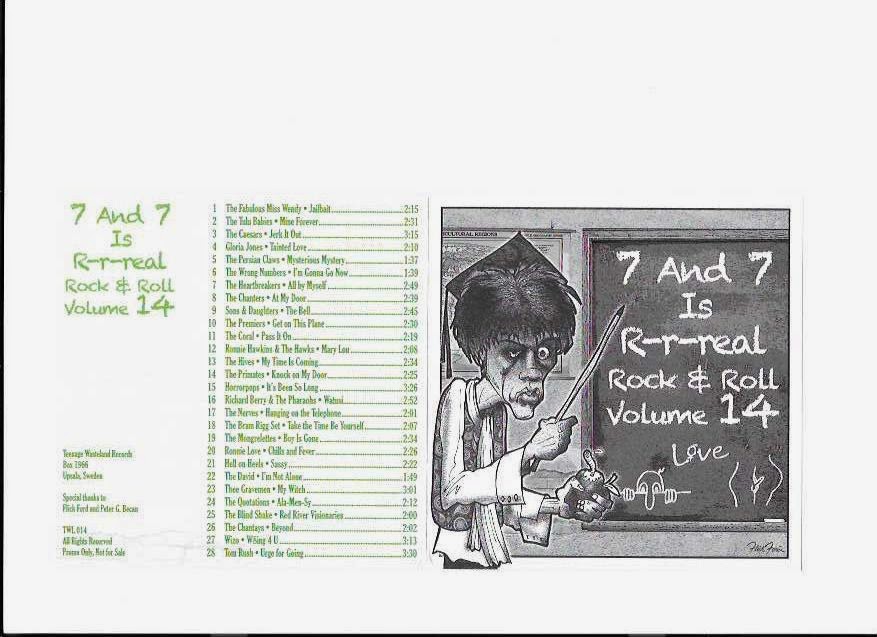 7 And 7
Is
R-r-real
Rock & Roll
Volume 14
1 The Fabulous Miss Wendy • Jailbait 2:15
2 The Tulu Babies • Mine Forever 2:31
3 The Caesars • Jerk It Out 3:15
4 Gloria Jones • Tainted Love 2:10
5 The Persian Claws • Mysterious Mystery 1:37
6 The Wrong Numbers • I'm Gonna Go Now 1:39
7 The Heartbreakers • All by Myself 2:49
8 The Chanters • At My Door 2:39
9 Sons & Daughters • The Bell 2:45
10 The Premiers • Get on This Plane 2:30
11 The Coral • Pass It On 2:19
12 Ronnie Hawkins & The Hawks • Mary Lou 2:08
13 The Hives • My Time Is Coming 2:34
14 The Primates • Knock on My Door 2:25
15 Horrorpops • It's Been So Long 3:26
16 Richard Berry & The Pharaohs • Watusi 2:52
17 The Nerves • Hanging on the Telephone 2:01
18 The Bram Rigg Set • Take the Time Be Yourself 2:07
19 The Mongrelettes • Boy Is Gone 2:34
20 Ronnie Love • Chills and Fever 2:26
21 Hell on Heels • Sassy 2:22
22 The David • I'm Not Alone 1:49
23 Thee Gravemen • My Witch 3:01
24 The Quotations • Ala-Men-Sy 2:12
25 The Blind Shake • Red River Visionaries 2:00
26 The Chantays • Beyond 2:02
27 Wizo • 4 U 3:13
28 Tom Rush • Urge for Going 3:30
Teenage Wasteland Records
Box 1966
Upsala, Sweden
Special thanks to
Flick Ford and Peter G. Bocan
TWL 014
All Rights Reserved
Promo Only, Not for Sale
CULTURAL REGIONS
7 And 7
Is
R-r-real
Rock & Roll
Volume 14
Love
Flick Ford